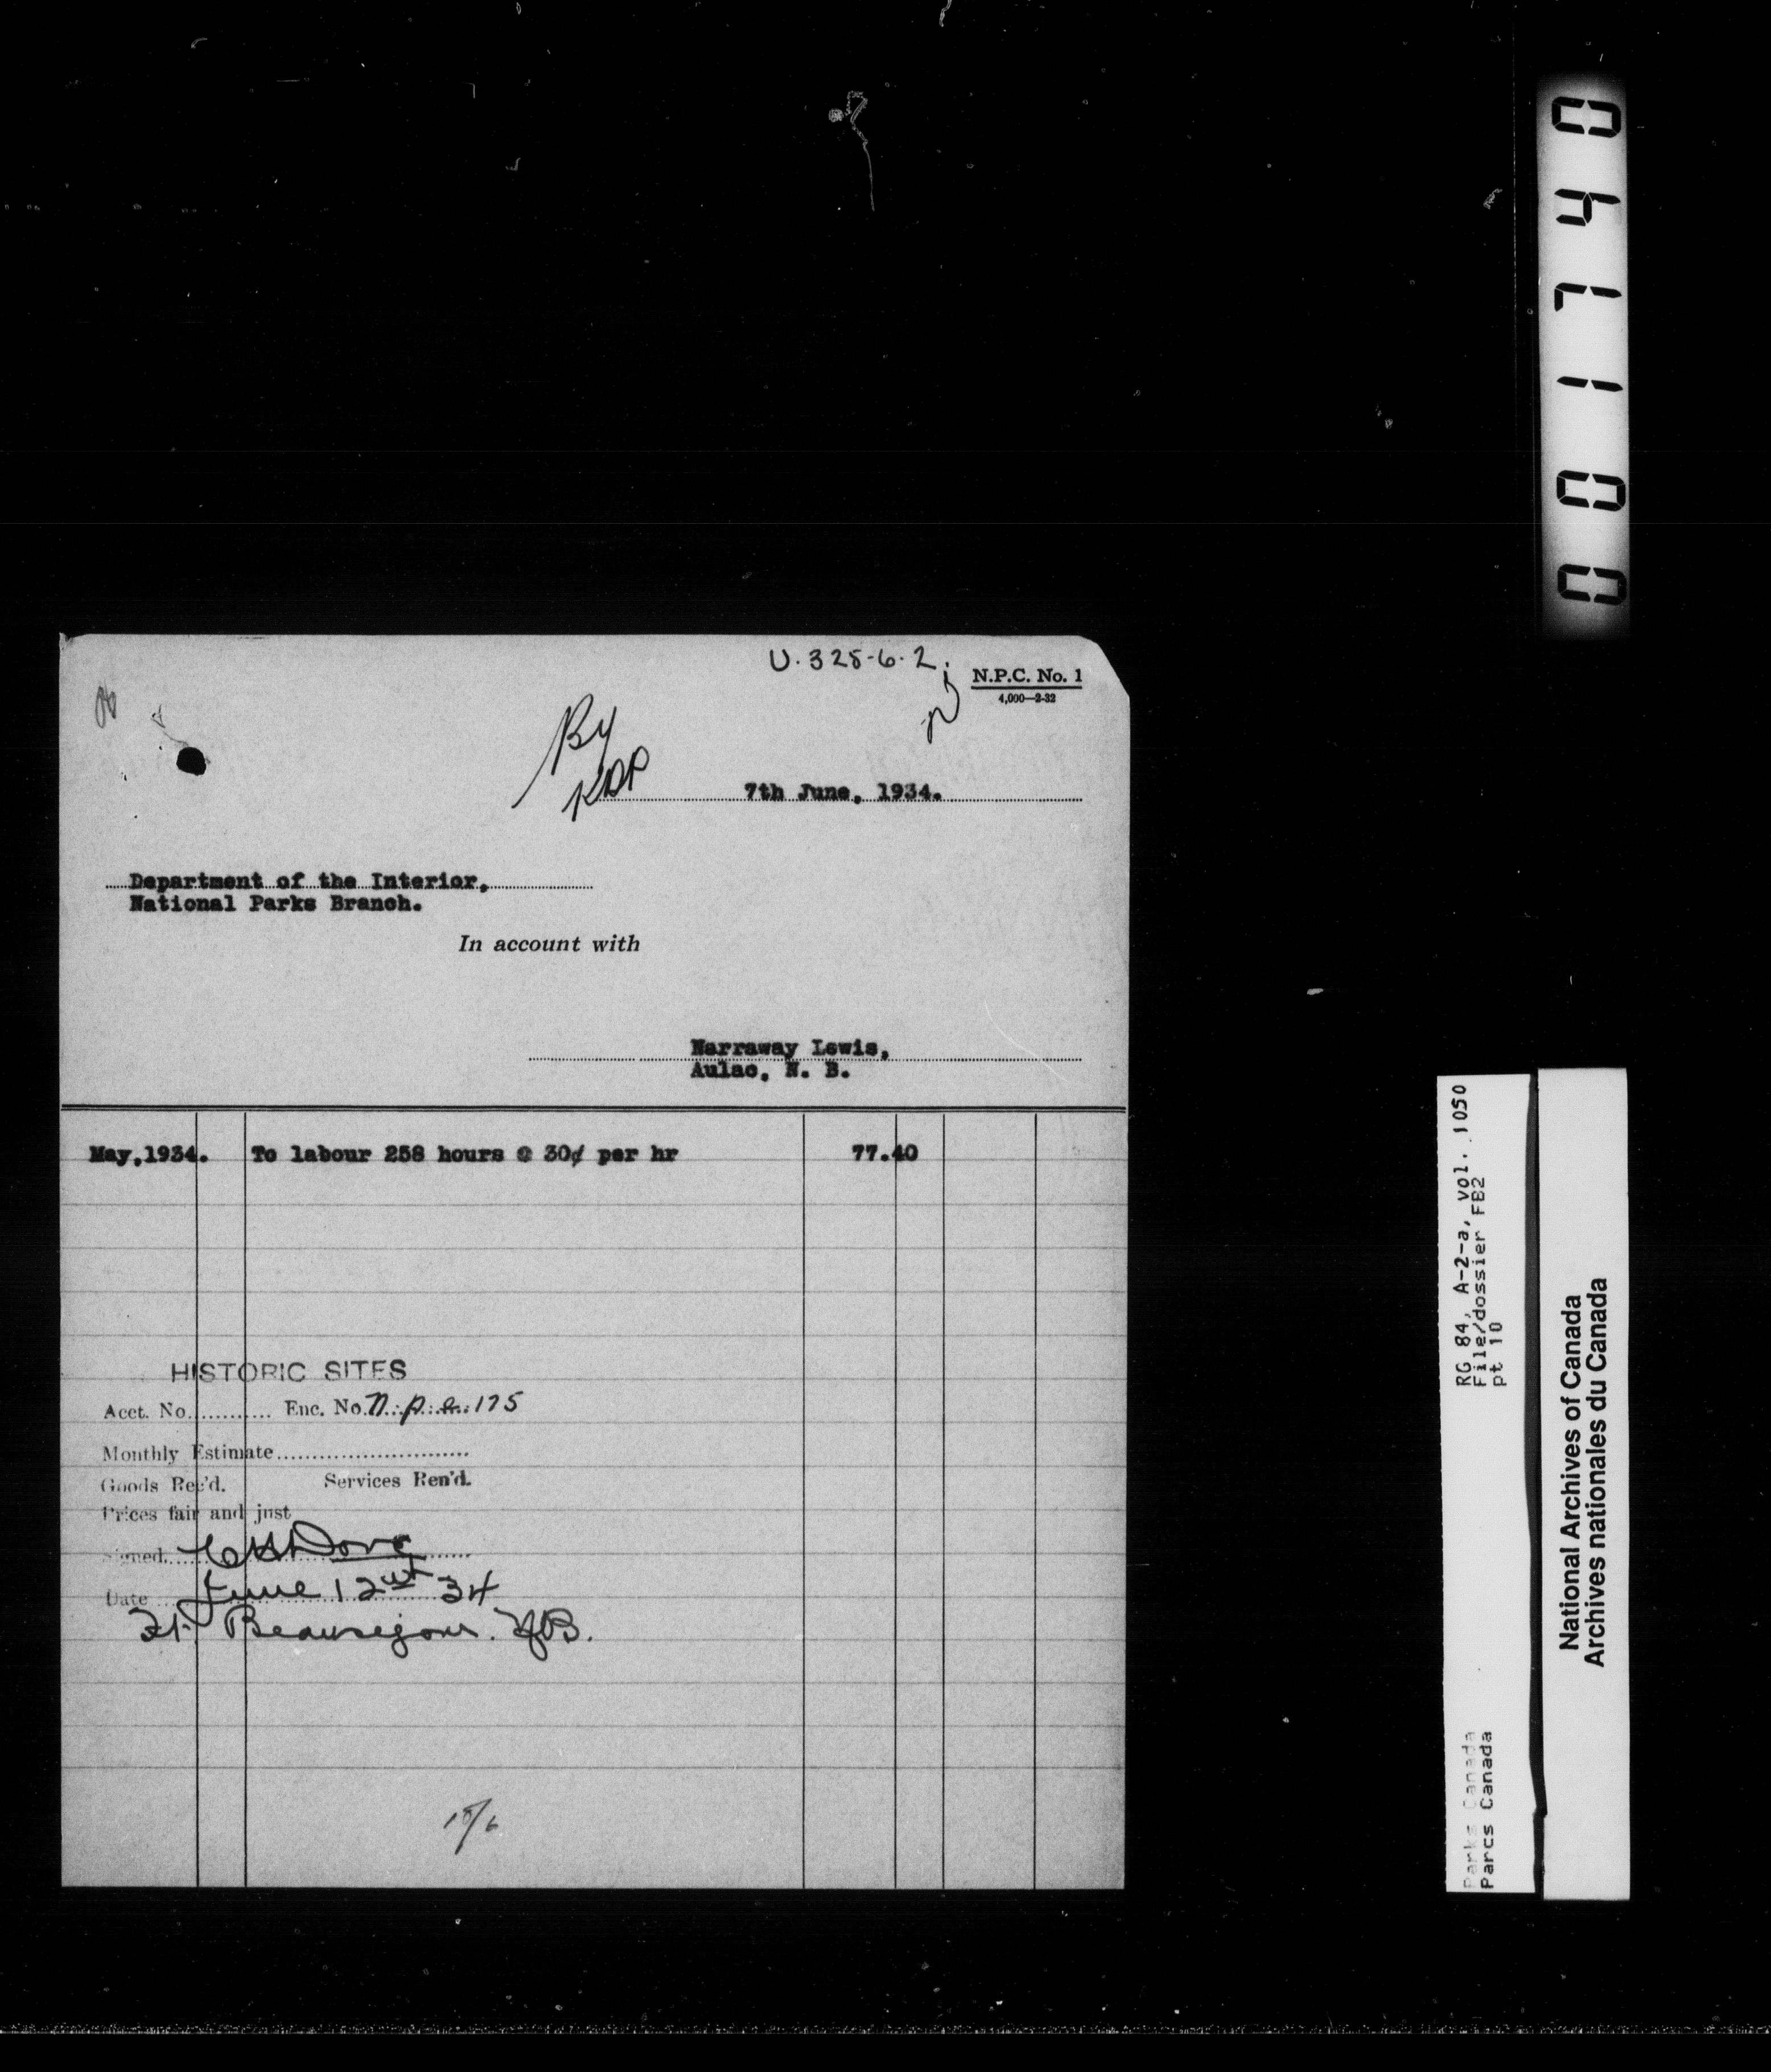 U.325-6-2.
N.P.C. No. 1
4,000—2-32
By
KDP
7th June, 1934.
Department of the Interior,
National Parks Branch.
In account with
Narraway Lewis,
Aulac, N. B.
May,1934. To labour 258 hours @ 30¢ per hr 77.40
HISTORIC SITES
Acct. No. Enc. No. n.p.c. 175
Monthly Estimate
Goods Rec'd. Services Ren'd.
Prices fair and just
Signed
Date June 12 34
Ft. Beausejour. N.B.
18/6
001740
RG 84, A-2-a, vol. 1050
File/dossier FB2
pt 10
Parks Canada
Parcs Canada
National Archives of Canada
Archives nationales du Canada